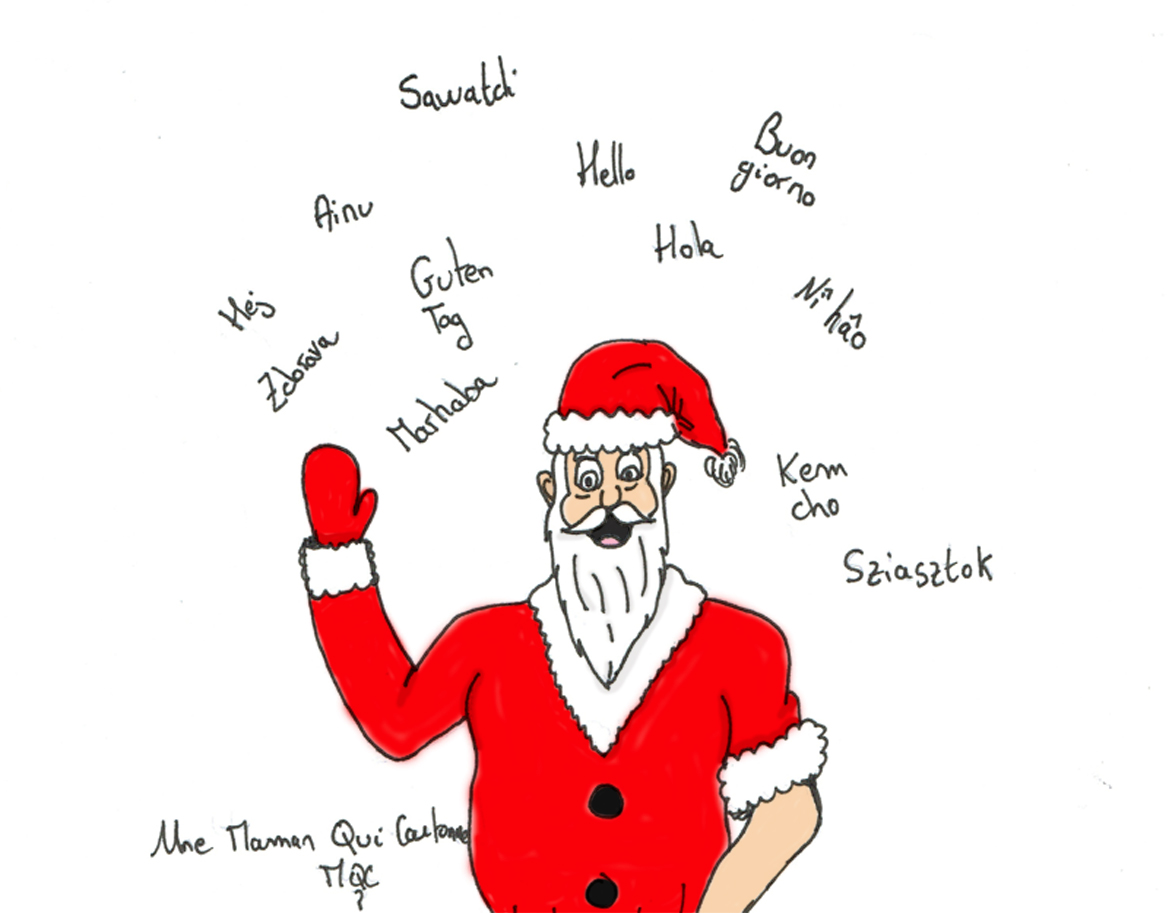 Sawatdi
Hello
Buon
giorno
Ainu
Hola
Guten
Tag
Nî hâo
Hej
Zdorava
Marhaba
Kem
cho
Sziasztok
Une Maman Qui Cartonne
MQC